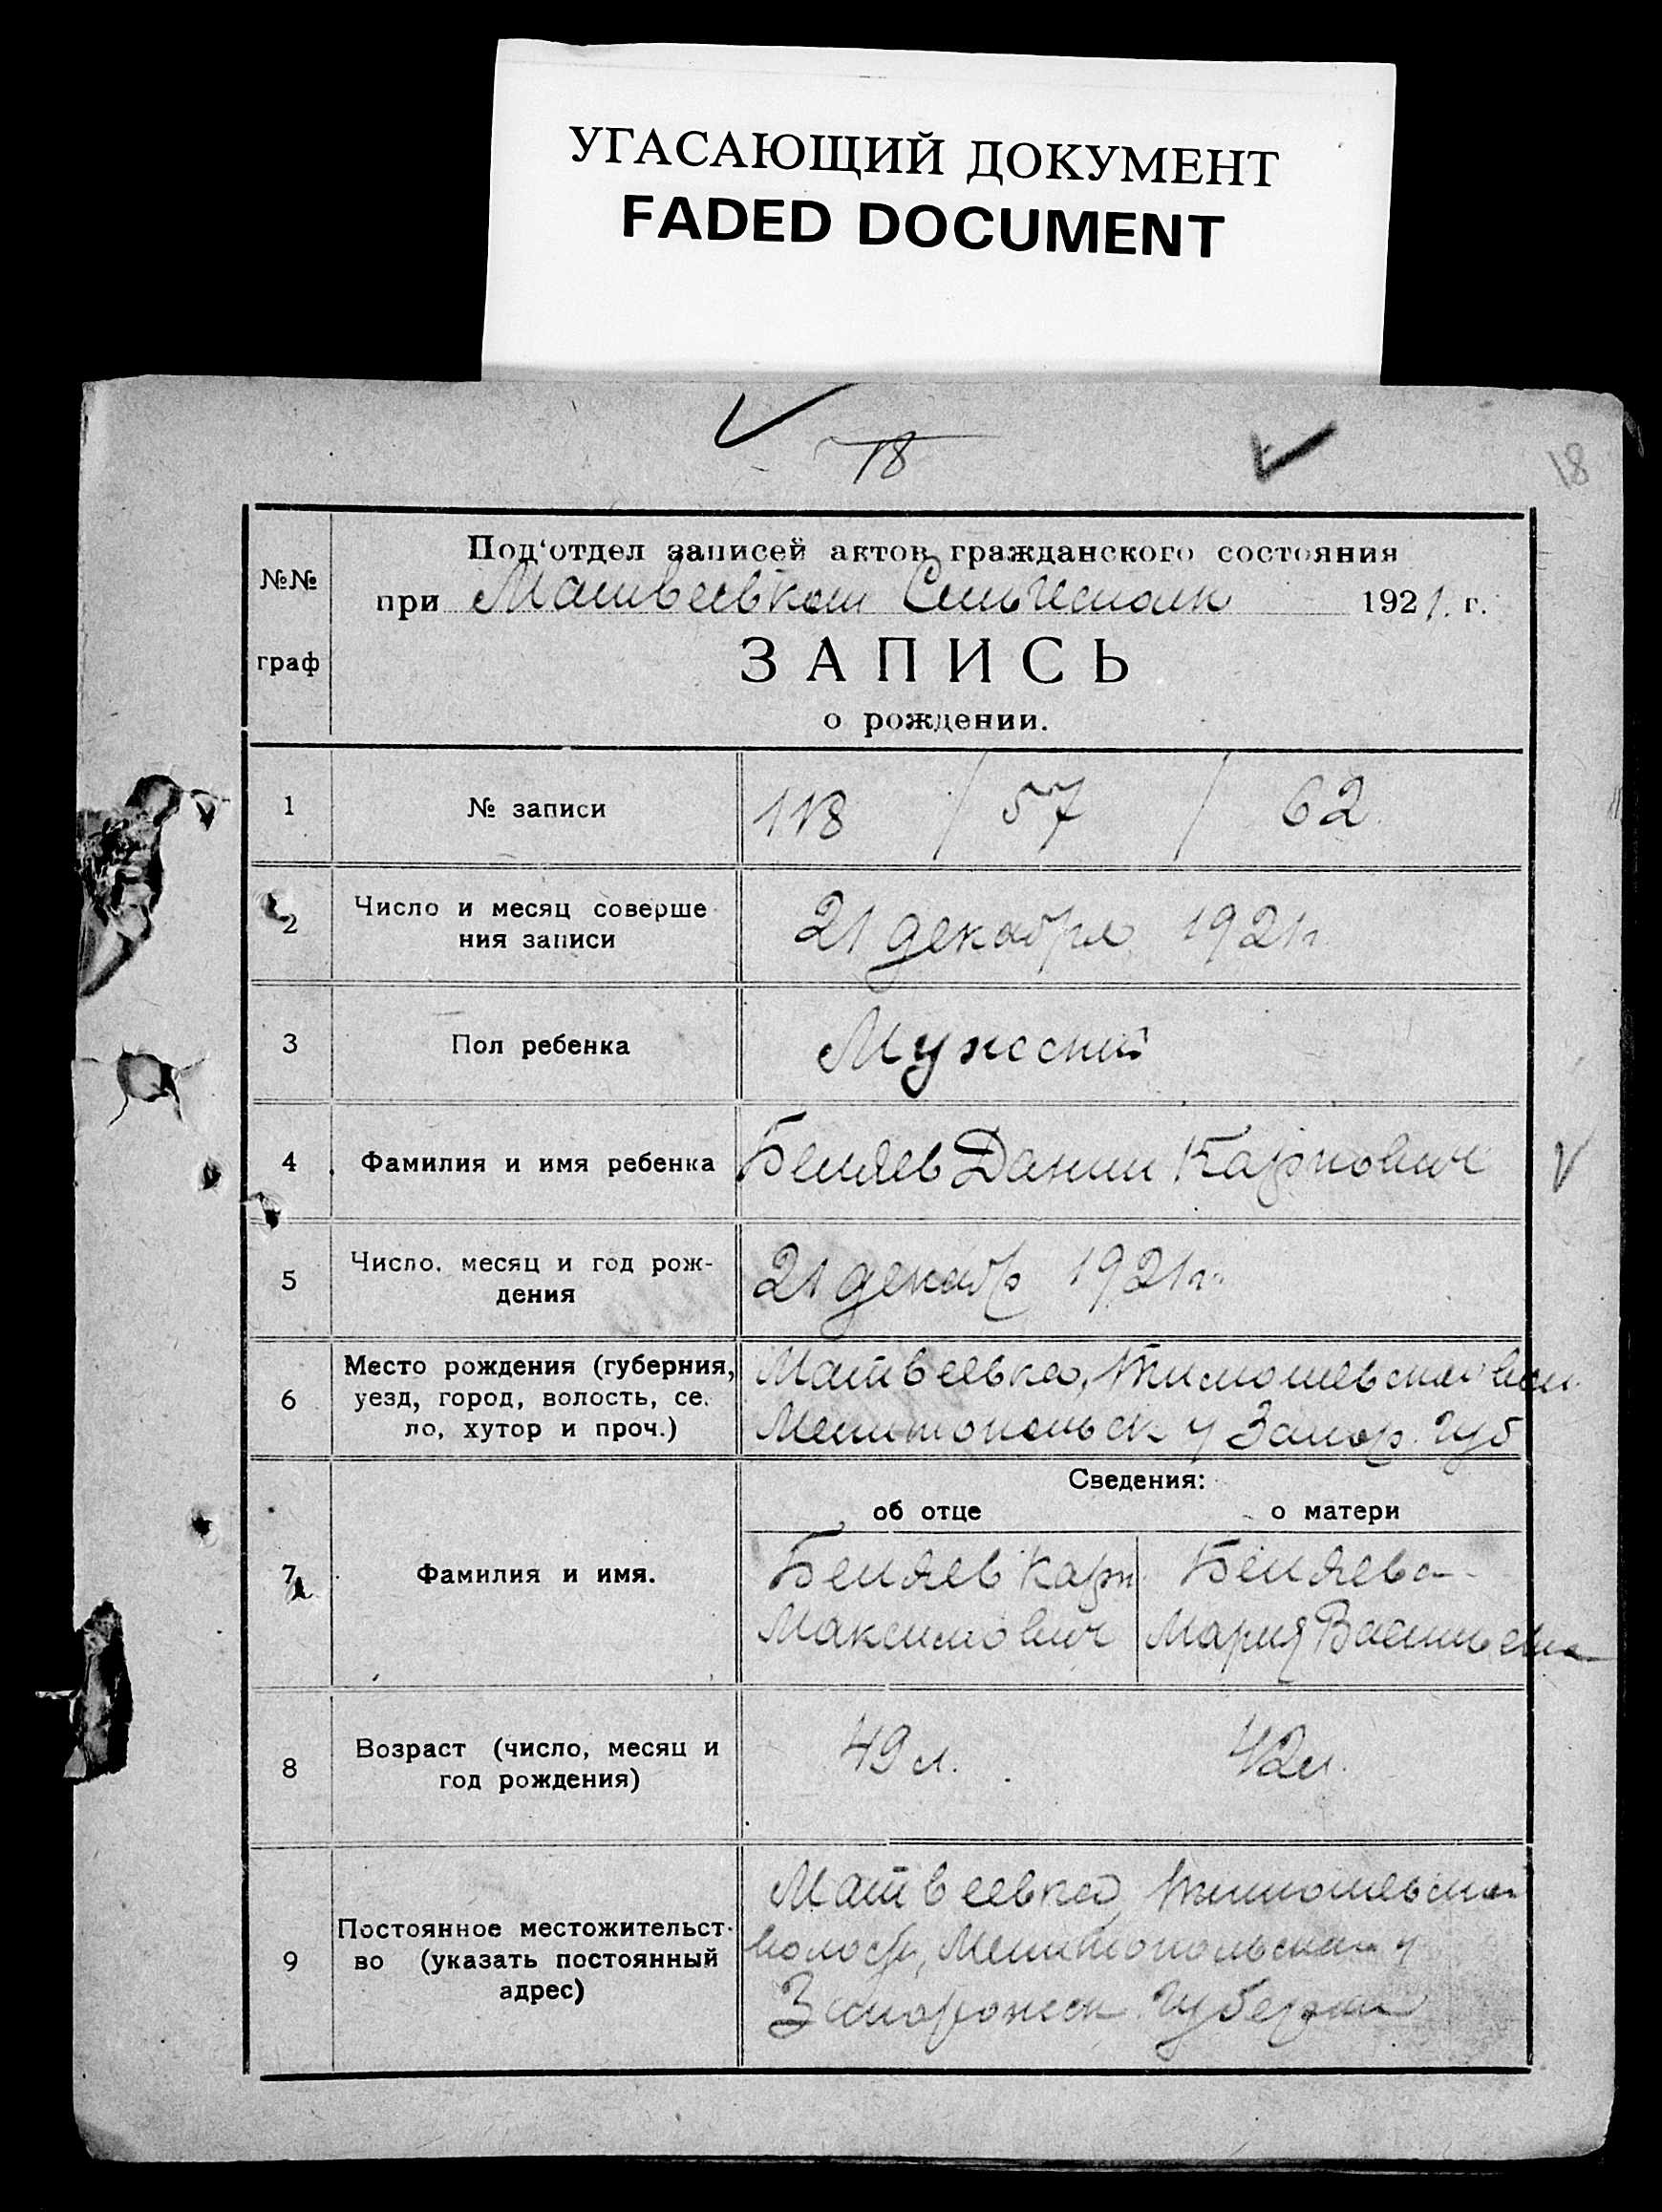 УГАСАЮЩИЙ ДОКУМЕНТ
FADED DOCUMENT
18
18
№№
граф
Под'отдел записей актов гражданского состояния
при Матвеевком 1921 г.
ЗАПИСЬ
о рождении.
1 № записи 118 / 57 / 62
2 Число и месяц соверше
ния записи 21 декабря 1921г
3 Пол ребенка Мужский
4 Фамилия и имя ребенка Беляев Данил Карпович
5 Число, месяц и год рож-
дения 21 декабр 1921г.
6 Место рождения (губерния,
уезд, город, волость, се-
ло, хутор и проч.)
Матвеевка, Тимошевская вол.
Мелитопольск у Запор. губ
Сведения:
об отце о матери
7 Фамилия и имя.
Беляев Карп
Максимович
Беляева
Мария Васильевна
8 Возраст (число, месяц и
год рождения)
49 л. 42 л.
9 Постоянное местожительст-
во (указать постоянный
адрес)
Матвеевка, Тимошевской
волости, Мелитопольская у
Запорожск. губернии